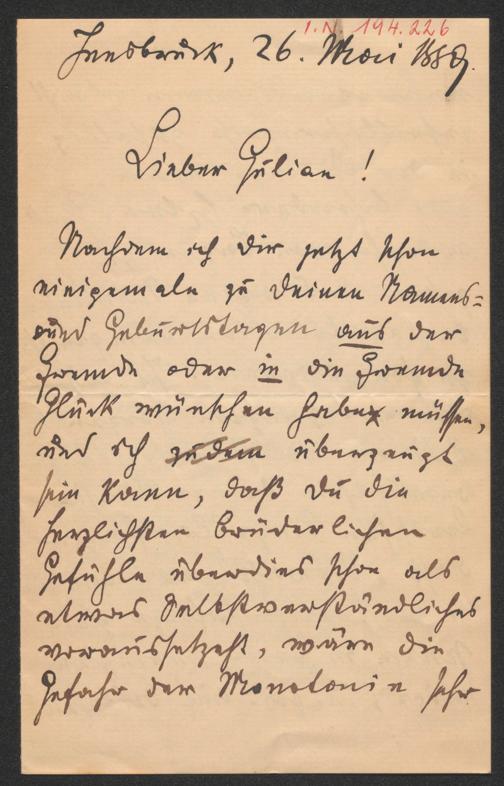 I.N. 194.226
Innsbruck, 26. Mai 1889.
Lieber Julian!
Nachdem ich Dir jetzt schon
einigemale zu Deinen Namens-
und Geburtstagen aus der
Fremde oder in die Fremde
Glück wünschen habe müssen,
und ich zudem überzeugt
sein kann, daß Du die
herzlichsten brüderlichen
Gefühle überdies schon als
etwas Selbstverständliches
voraussetzest, wäre die
Gefahr der Monotonie sehr